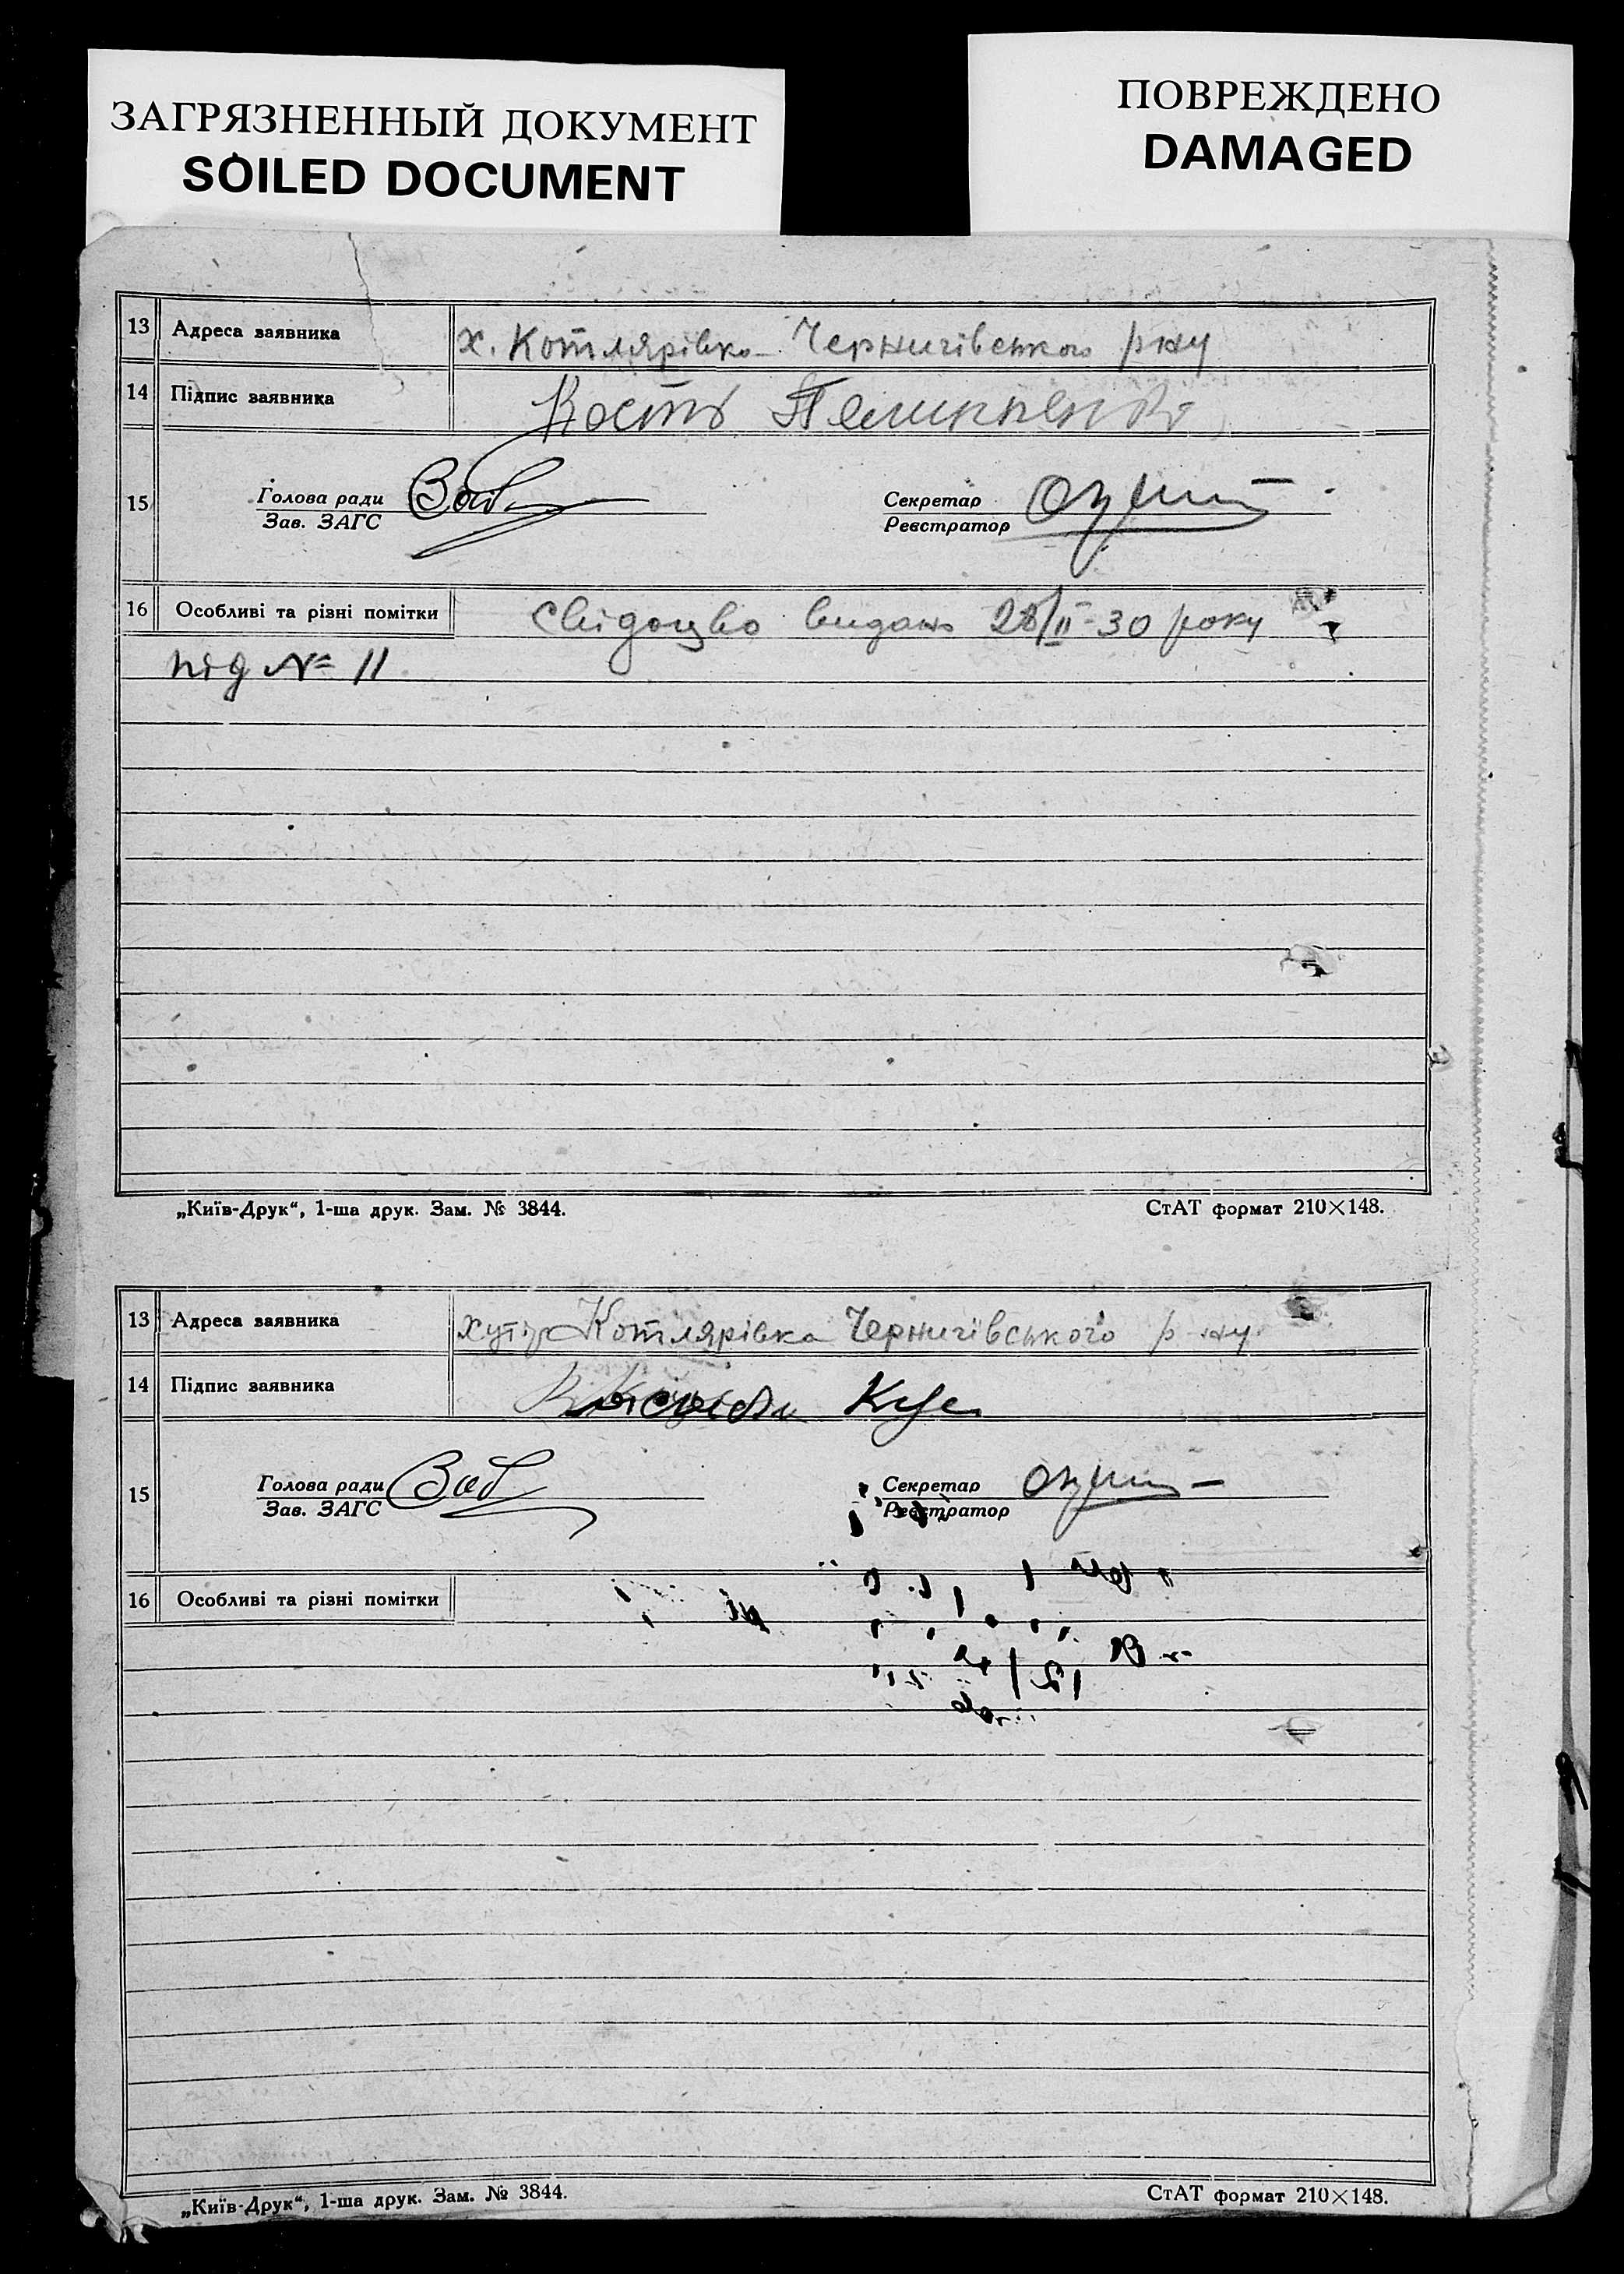 ЗАГРЯЗНЕННЫЙ ДОКУМЕНТ
SOILED DOCUMENT
ПОВРЕЖДЕНО
DAMAGED
13 Адреса заявника х. Котлярівка Чернигівського р-ну
14 Підпис заявника Кость
15 Голова ради Секретар
Зав. ЗАГС Реєстратор
16 Особливі та різні помітки Свідоцво видано 28/II-30 року
під № 11
„Київ-Друк“, 1-ша друк. Зам. № 3844. СтАТ формат 210×148.
13 Адреса заявника хутір Котлярівка Чернигівського р-ну
14 Підпис заявника
15 Голова ради Секретар
Зав. ЗАГС Реєстратор
16 Особливі та різні помітки
„Київ-Друк“, 1-ша друк. Зам. № 3844. СтАТ формат 210×148.